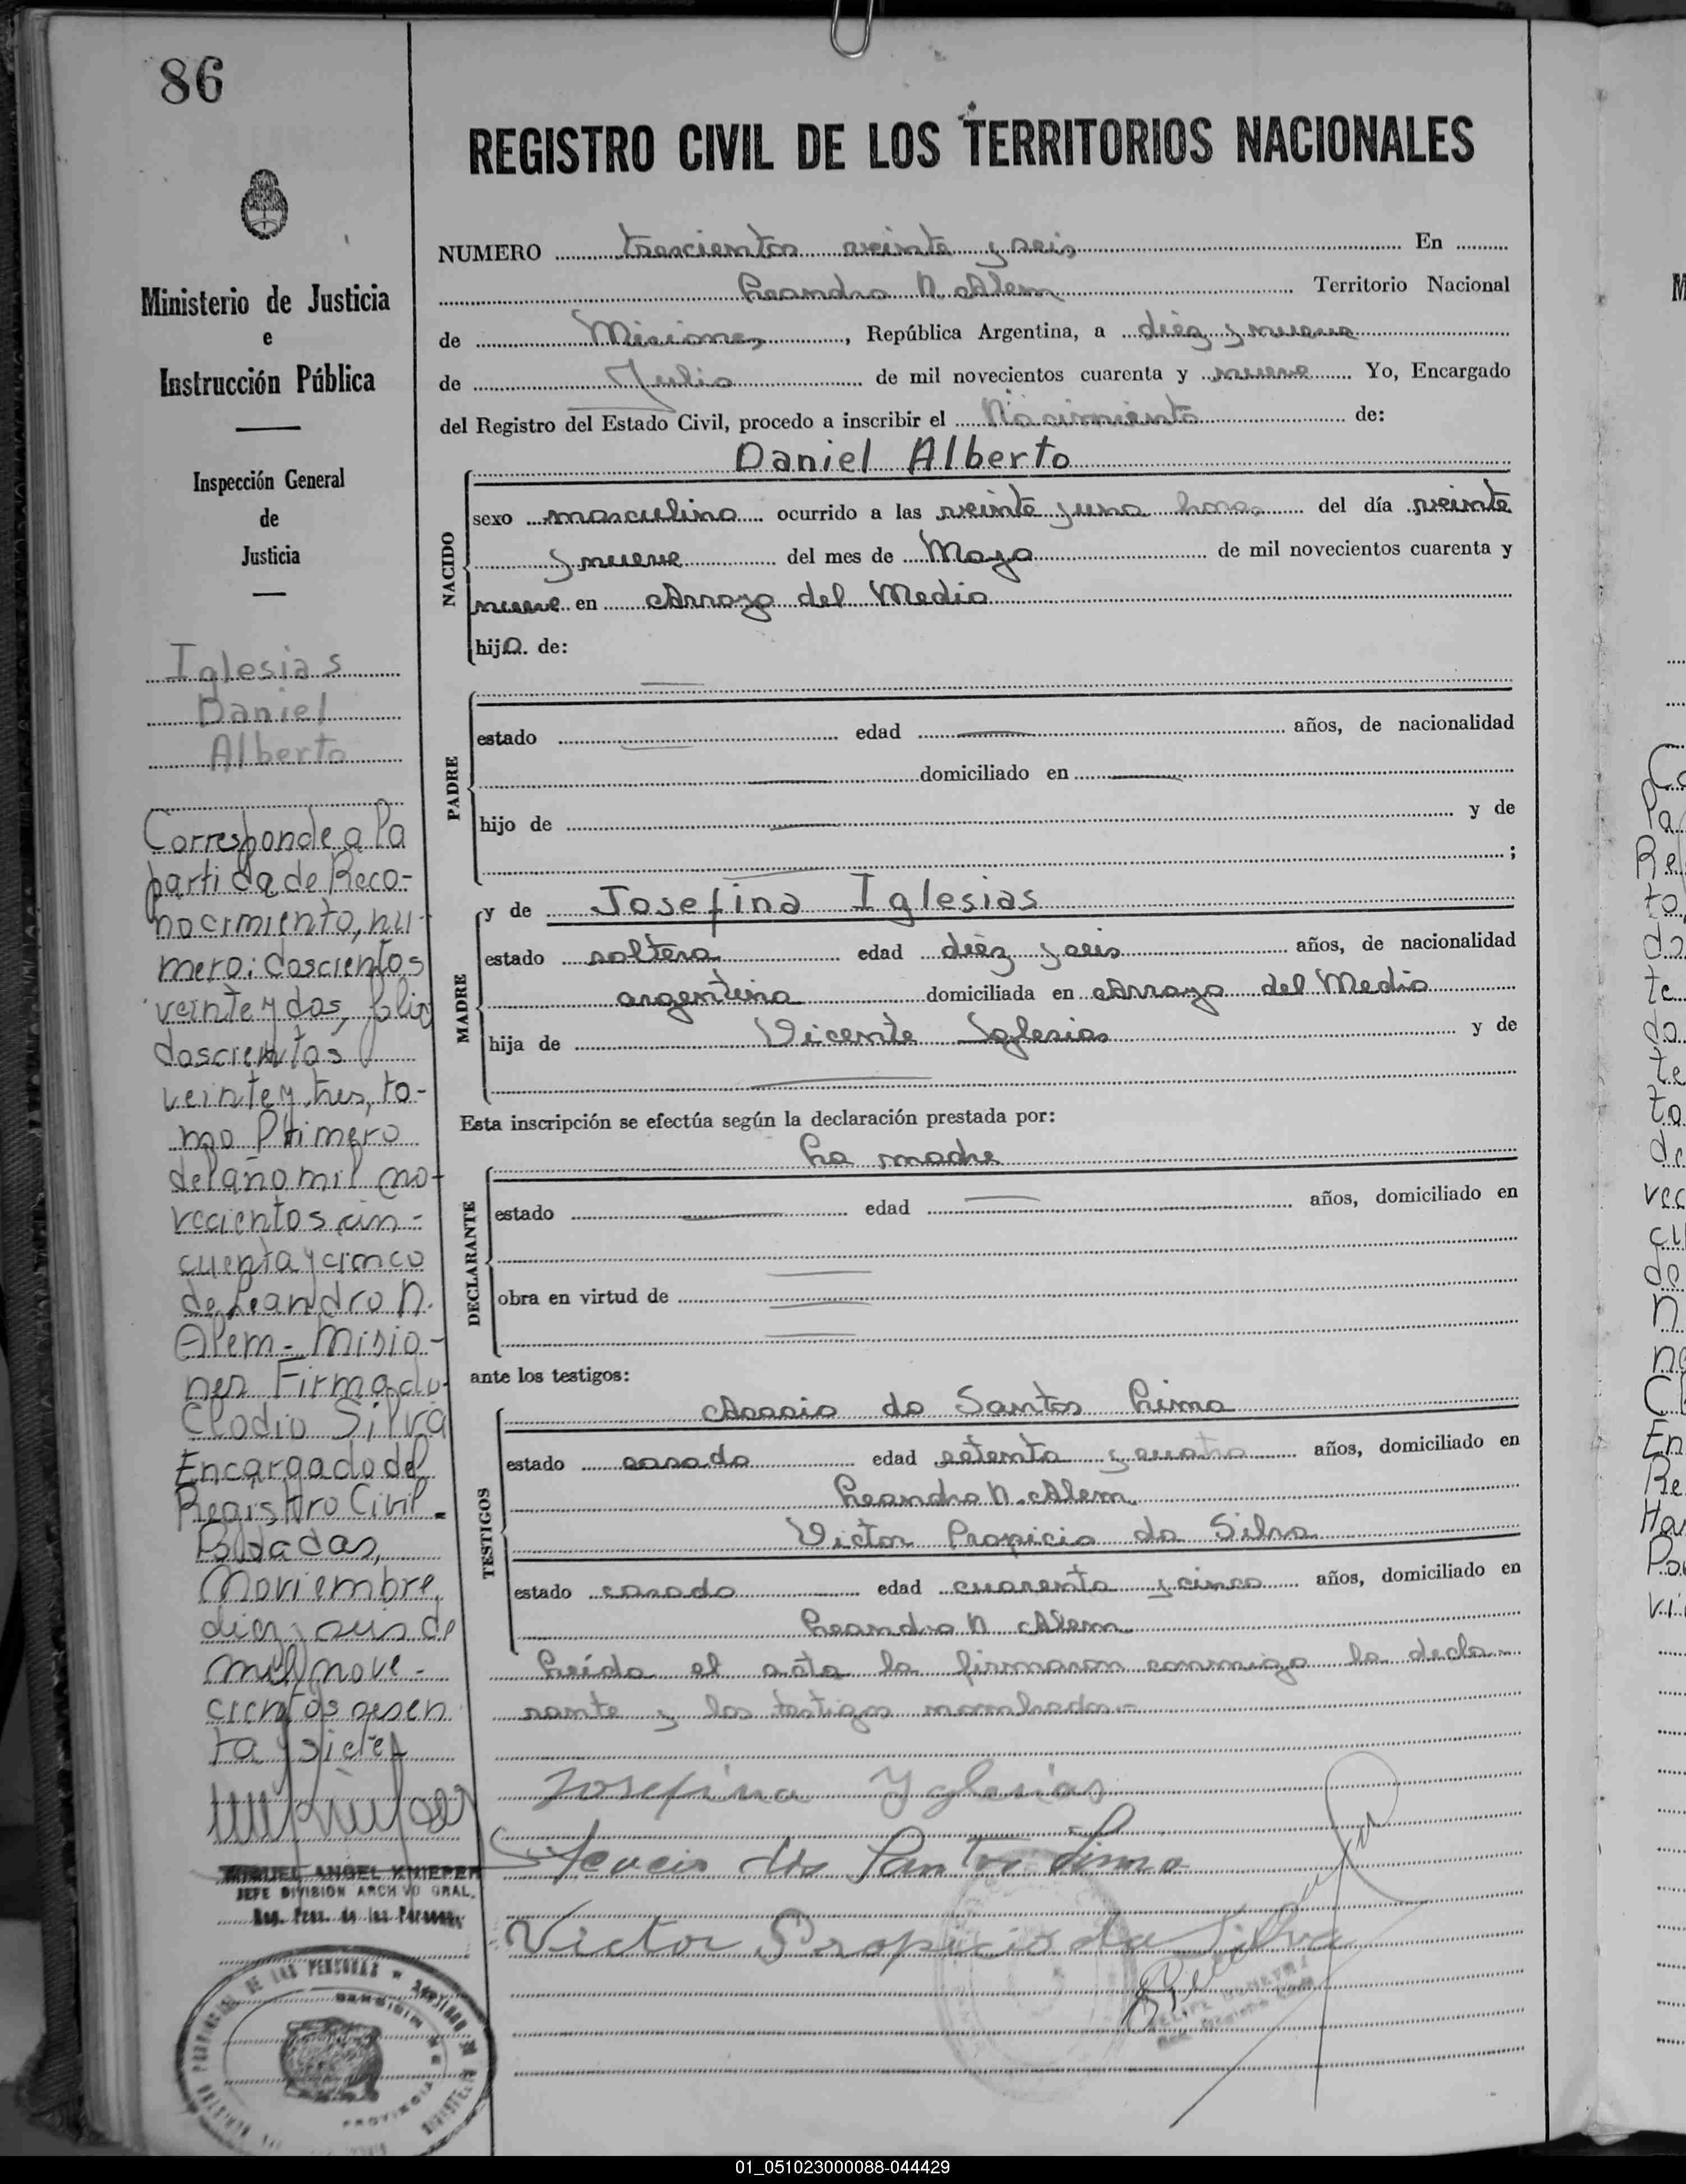 86
REGISTRO CIVIL DE LOS TERRITORIOS NACIONALES
Ministerio de Justicia
e
Instrucción Pública
Inspección General
de
Justicia
Iglesias
Daniel
Alberto
Corresponde a la
partida de Reco-
nocimiento, nu-
mero: doscientos
veinte y dos, folio
doscientos
veinte y tres, to-
mo Primero
del año mil no-
vecientos cin-
cuenta y cinco
de Leandro N.
Alem - Misio-
nes Firmado
Clodio Silva
Encargado del
Registro Civil.
Posadas,
Noviembre,
diez y seis de
mil nove-
cientos sesen
ta y siete
MIGUEL ANGEL KNIEPER
JEFE DIVISION ARCHIVO GRAL.
Reg. Prov. de las Personas
NUMERO trescientos veinte y seis En
Leandro N. Alem Territorio Nacional
de Misiones, República Argentina, a diez y nueve
de Julio de mil novecientos cuarenta y nueve Yo, Encargado
del Registro del Estado Civil, procedo a inscribir el Nacimiento de:
Daniel Alberto
NACIDO
sexo masculino ocurrido a las veinte y una horas del día veinte
y nueve del mes de Mayo de mil novecientos cuarenta y
nueve en Arroyo del Medio
hijo. de:
PADRE
estado edad años, de nacionalidad
domiciliado en
hijo de y de
;
MADRE
y de Josefina Iglesias
estado soltera edad diez y seis años, de nacionalidad
argentina domiciliada en Arroyo del Medio
hija de Vicente Iglesias y de
Esta inscripción se efectúa según la declaración prestada por:
La madre
DECLARANTE
estado edad años, domiciliado en
obra en virtud de
ante los testigos:
TESTIGOS
do Santos Lima
estado casado edad setenta y cuatro años, domiciliado en
Leandro N. Alem
Victor Propicio da Silva
estado casado edad cuarenta y cinco años, domiciliado en
Leandro N Alem
Leída el acta la firmaron conmigo la decla-
rante y los testigos nombrados.-
Josefina Yglesias
dos Santos Lima
Victor Propicio da Silva
01_051023000088-044429